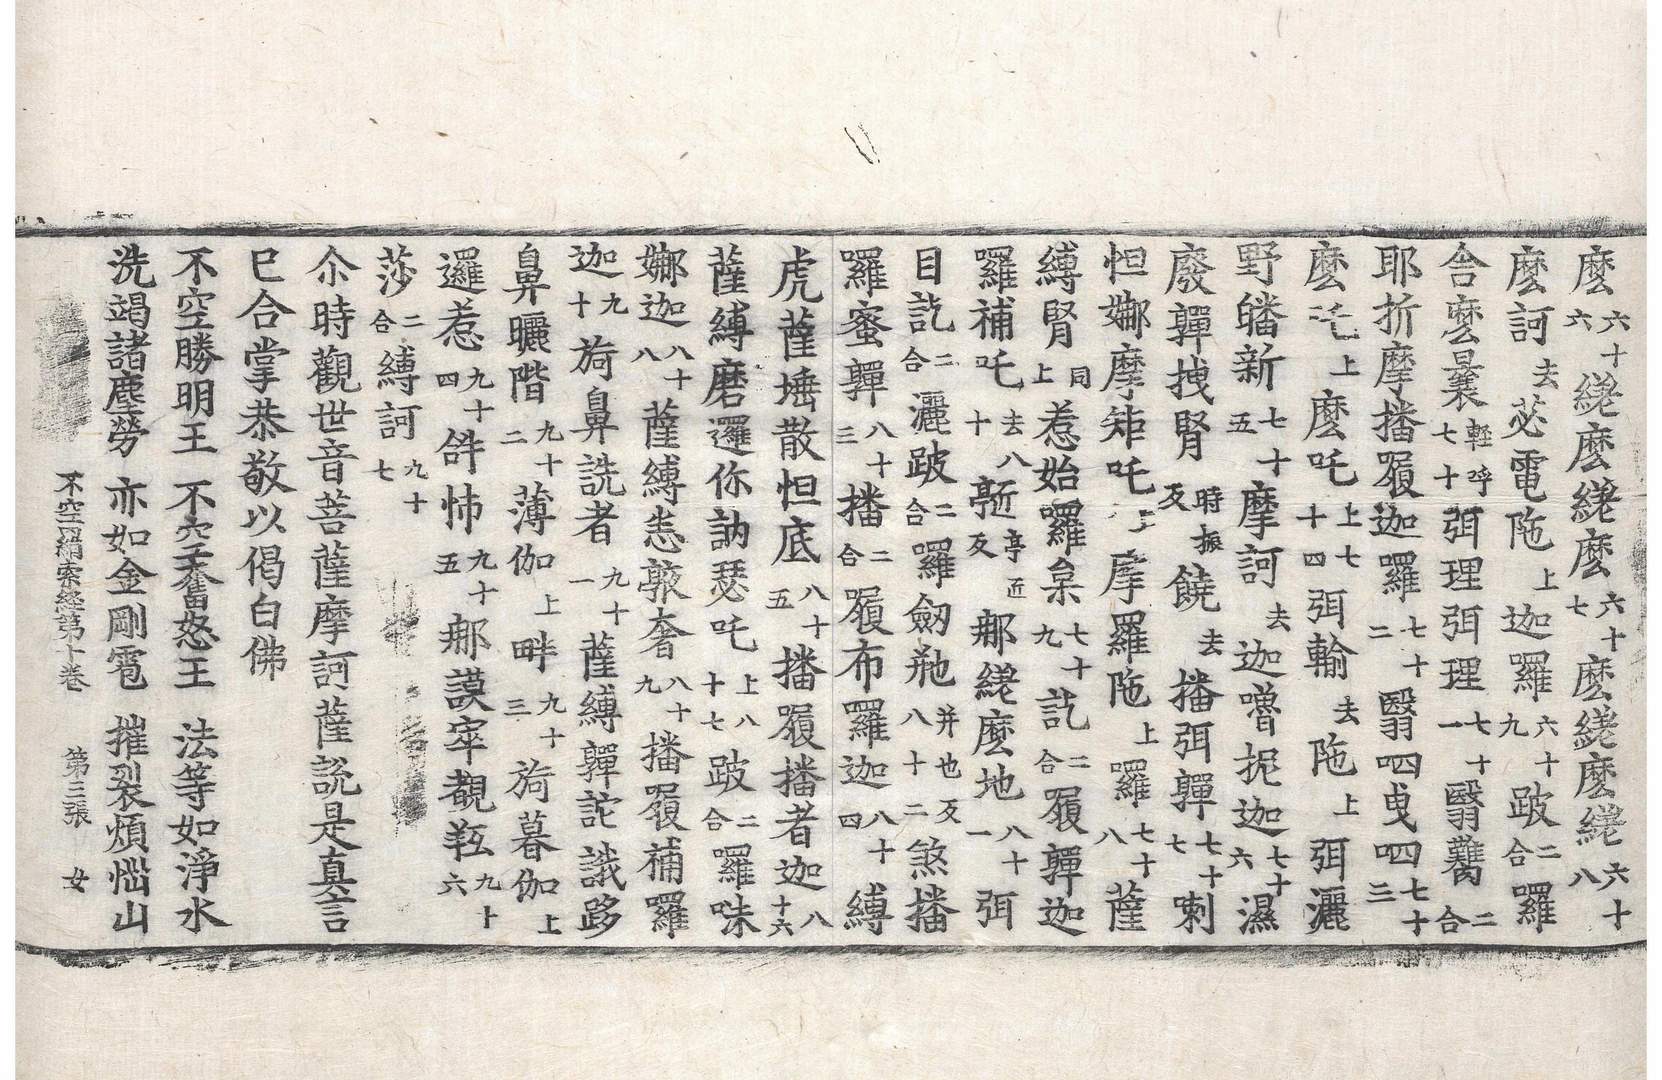 麼六十六㘑麼㘑麼六十七麼㘑麼㘑六十八
麼訶去苾電陁上迦囉六十九跛二合囉
舍麼曩輕呼七十弭理弭理七十一翳鷬二合
耶折摩播履迦囉七十二翳呬曳呬七十三
麼吒上麼吒上七十四弭輸去陁上弭灑
野皤新七十五摩訶去迦嚕抳迦七十六濕
廢鸋拽腎時振反饒去播弭鸋七十七喇
怛娜摩矩吒上摩羅陁上囉七十八薩
縛腎同上惹始囉枲七十九訖二合履鸋迦
囉補吒去八十𩕳亭近反那㘑麼地八十一弭
目訖二合灑跛二合囉劒㐌并也反八十二煞播
囉蜜鸋八十三播二合履布羅迦八十四縛
虎薩埵散怛底八十五播履播者迦八十六
薩縛磨邏你訥瑟吒上八十七跛二合囉昧
娜迦八十八薩縛恚歒奢八十九播履補囉
迦九十旖鼻詵者九十一薩縛鸋詑誐跢
鼻曬階九十二薄伽上畔九十三旖暮伽上
邏惹九十四斜怖九十五那謨窣覩𦍑九十六
莎二合縛訶九十七
尒時觀世音菩薩摩訶薩說是真言
已合掌恭敬以偈白佛
不空勝明王　不空奮怒王　法等如淨水
洗竭諸塵勞　亦如金剛雹　摧裂煩惱山
不空羂索經第十卷　第三張　女